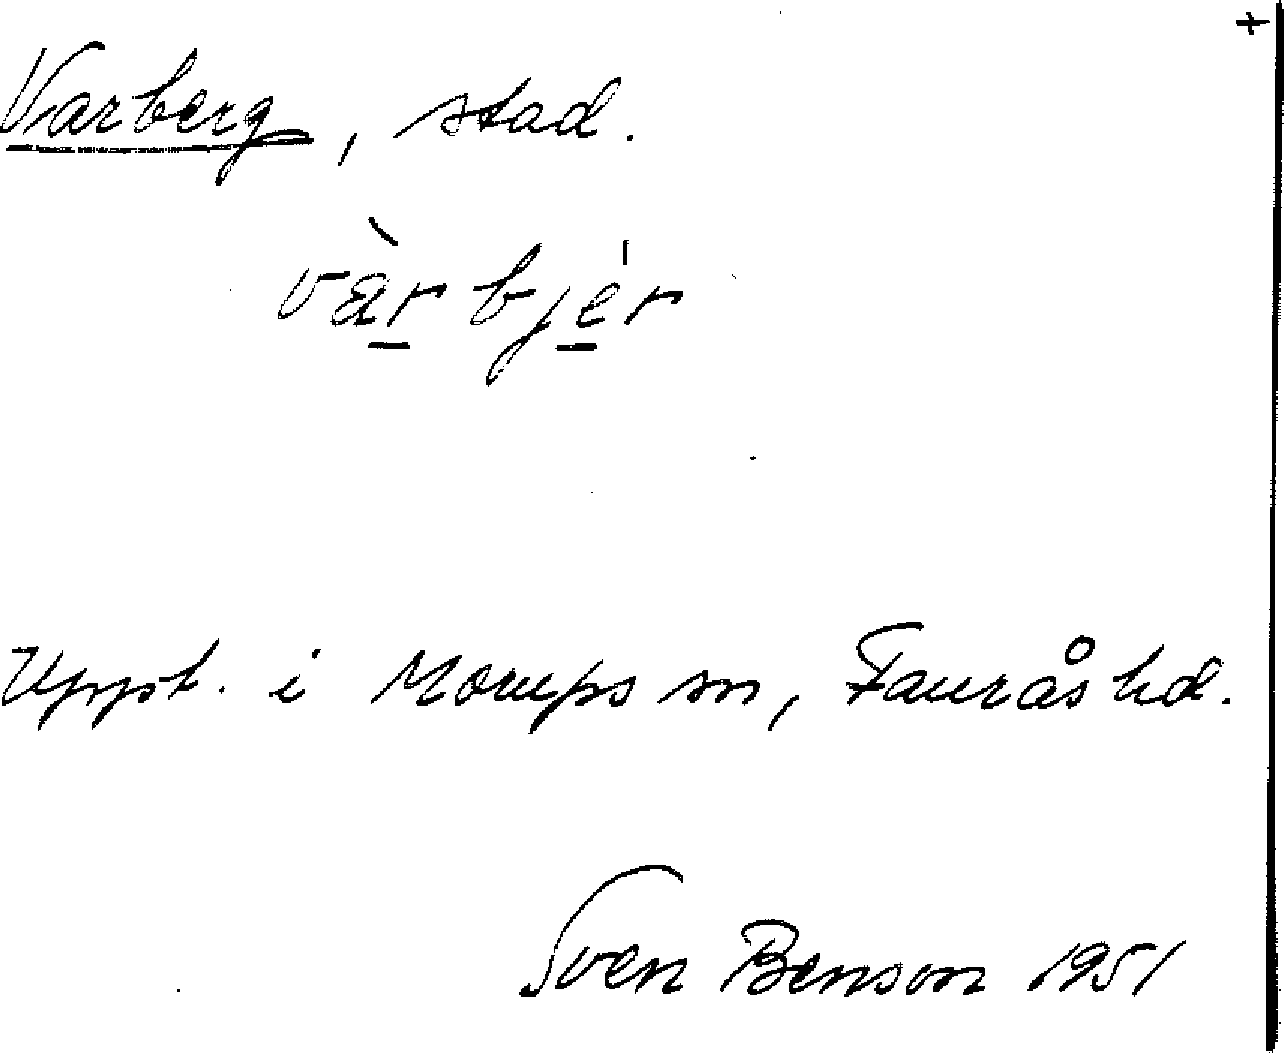 +
Varberg, stad.
vàr bjér
Uppt. i Morups sn, Fauråshd.
Sven Benson 1951